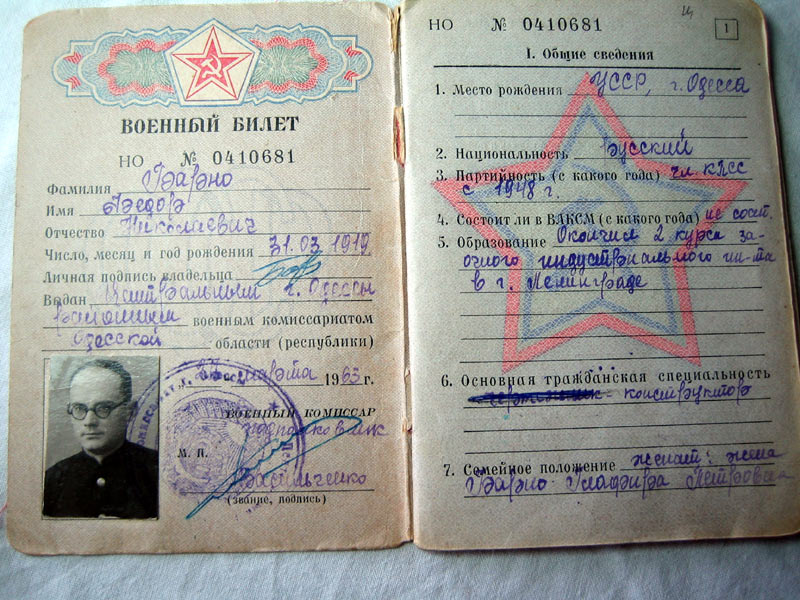 ВОЕННЫЙ БИЛЕТ
НО № 0410681
Фамилия Барно
Имя Федор
Отчество Николаевич
Число, месяц и год рождения 31.03.1919
Личная подпись владельца
Выдан Центральным г. Одессы
районным военным комиссариатом
Одесской области (республики)
27 марта 1963 г.
ВОЕННЫЙ КОМИССАР
подполковник
М. П.
Васильченко
(звание, подпись)
НО № 0410681
1
I. Общие сведения
1. Место рождения УССР, г. Одесса
2. Национальность Русский
3. Партийность (с какого года) чл. КПСС
с 1948 г.
4. Состоит ли в ВЛКСМ (с какого года) не сост.
5. Образование Окончил 2 курса за-
очного индустриального ин-та
в г. Ленинграде
6. Основная гражданская специальность
конструктор
7. Семейное положение женат: жена
Барно Глафира Петровна